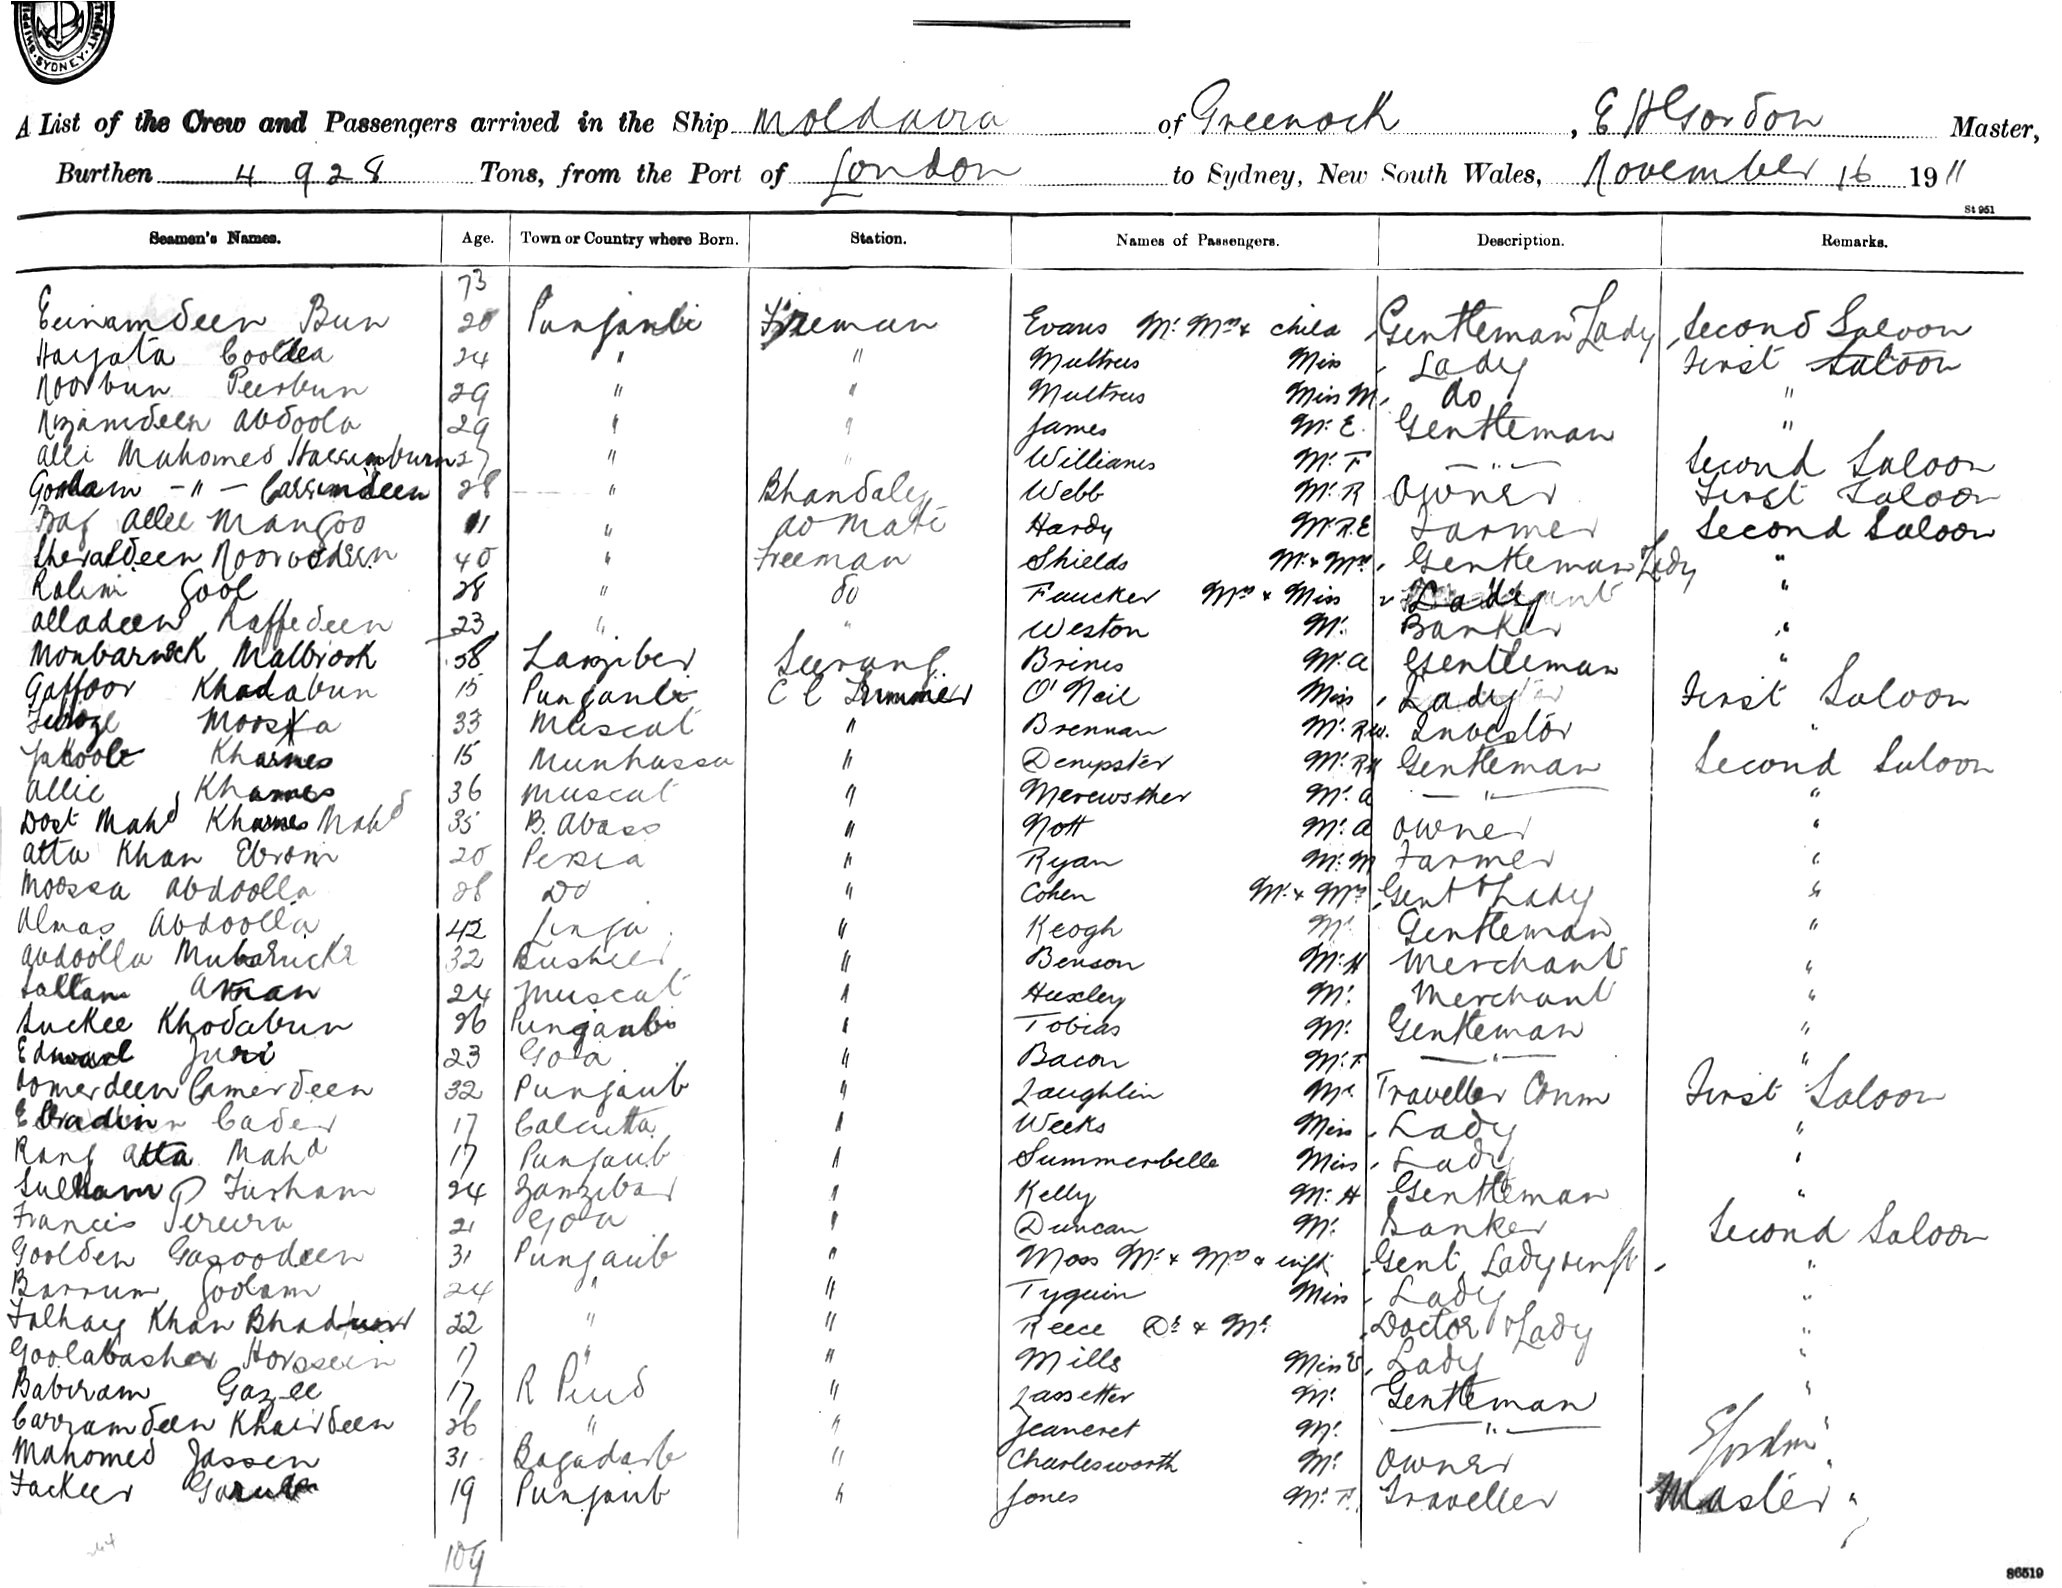 SHIPPING DEPARTMENT. SYDNEY.
A List of the Crew and Passengers arrived in the Ship Moldavia of Greenock, E H Gordon Master,
Burthen 4928 Tons, from the Port of London to Sydney, New South Wales, November 16 1911
St 951
Seamen's Names. Age. Town or Country where Born. Station. Names of Passengers. Description. Remarks.
73
Eeinamdeen Bun 28 Punjaub Fireman Evans Mr. Mrs & child Gentleman Lady Second Saloon
Hayata 24 " " Multrus Miss Lady First Saloon
Noorbun Peerbun 29 " " Multrus Miss M. do "
Nizamdeen Abdoola 29 " " James Mr. E. Gentleman "
Alli Mahomed Hassimburn 27 " " Williams Mr. F — " — Second Saloon
Goolam — " — Cassimdeen 28 " Bhandaley Webb Mr. R Owner First Saloon
Bag Allee Mangoo 11 " do Mate Hardy Mr. R.E Farmer Second Saloon
Sheraldeen Noorodeen 40 " Fireman Shields Mr. & Mrs. Gentleman Lady "
Ralim Gool 28 " do Faucker Mrs & Miss Lady "
Alladeen Raffedeen 23 " " Weston Mr. Banker "
Monbarruck Malbrook 58 Zanziber Seerang Brines Mr. A Gentleman "
Gaffoor Khodabun 15 Punjaub C C Trimmer O'Neil Miss Lady First Saloon
Moosa 33 Muscat " Brennan Mr. R.W. Investor "
Khames 15 Munhassa " Dempster Mr. R H Gentleman Second Saloon
Allie Khames 36 Muscat " Merewether Mr. A — " — "
Dost Mahd Khames Mahd 35 B. Abass " Nott Mr. A Owner "
Atta Khan Ebrom 20 Persia " Ryan Mr. M Farmer "
Moossa Abdoolla 28 Do " Cohen Mr. & Mrs Gent & Lady "
Almas Abdoolla 42 Linga " Keogh Mr. Gentleman "
Abdoolla Mubarucks 32 Busheer " Benson Mr. H Merchant "
Saltam Aman 24 Muscat " Huxley Mr. Merchant "
Suckee Khodabun 26 Punjaub " Tobias Mr. Gentleman "
Edward Juri 23 Goa " Bacon Mr. F — " — "
Comerdeen Camerdeen 32 Punjaub " Laughlin Mr. Traveller Comm First Saloon
Cader 17 Calcutta " Weeks Miss Lady "
Rang Atta Mahd 17 Punjaub " Summerbelle Miss Lady "
Furham 24 Zanzibar " Kelly Mr. H Gentleman "
Francis Pereira 21 Goa " Duncan Mr. Banker Second Saloon
Goolden Gasoodeen 31 Punjaub " Moss Mr. & Mrs & inft Gent Lady & inft "
Barrum Goolam 24 " " Tyguin Miss Lady "
Falhay Khan 22 " " Reece Dr. & Mrs Doctor & Lady "
Goolabasher Hossein 17 " " Mills Miss E Lady "
Babiram Gazee 17 R Pind " Lassetter Mr. Gentleman "
Carramdeen Khairdeen 26 " " Jeaneret Mr. — " — "
Mahomed Jassen 31 Bagadarb " Charlesworth Mr. Owner E Gordon "
Fackeer 19 Punjaub " Jones Mr. F. Traveller Master "
109
86519